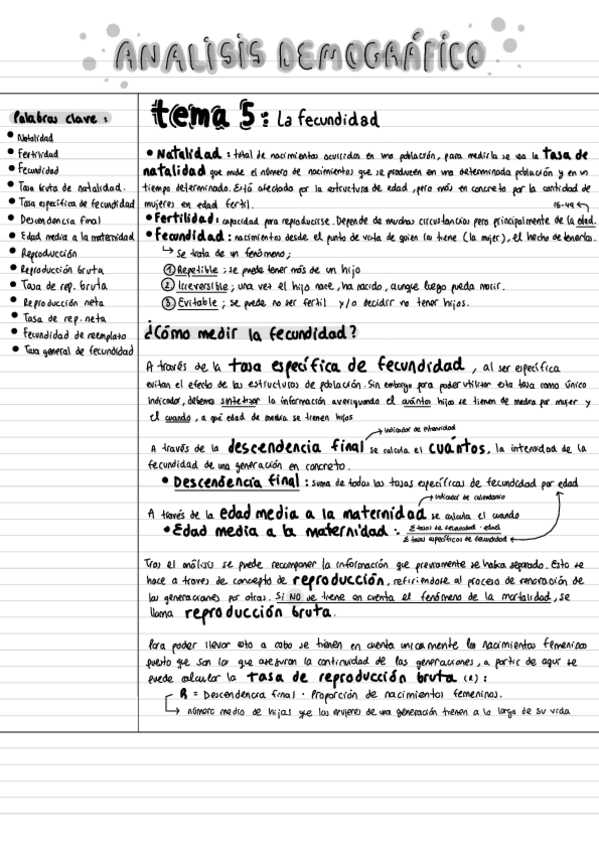 ANALISIS DEMOGRÁFICO
Palabras clave:
• Natalidad
• Fertilidad
• Fecundidad
• Tasa bruta de natalidad.
• Tasa específica de fecundidad
• Descendencia final
• Edad media a la maternidad
• Reproducción
• Reproducción bruta
• Tasa de rep. bruta
• Reproducción neta
• Tasa de rep. neta
• Fecundidad de reemplazo
• Tasa general de fecundidad
tema 5: La fecundidad
• Natalidad: total de nacimientos ocurridos en una población, para medirla se usa la tasa de
natalidad que mide el número de nacimientos que se producen en una determinada población y en un
tiempo determinado. Está afectada por la estructura de edad, pero más en concreto por la cantidad de
mujeres en edad fertil.
15-49
• Fertilidad: capacidad para reproducirse. Depende de muchas circustancias pero principalmente de la edad.
• Fecundidad: nacimientos desde el punto de vista de quien los tiene (la mujer), el hecho de tenerlos.
Se trata de un fenómeno;
① Repetible; se puede tener más de un hijo
② Irreversible; una vez el hijo nace, ha nacido, aunque luego pueda morir.
③ Evitable; se puede no ser fertil y/o decidir no tener hijos.
¿Cómo medir la fecundidad?
A través de la tasa específica de fecundidad, al ser específica
evitan el efecto de las estructuras de población. Sin embargo para poder utilizar esta tasa como único
indicador, debemos sintetizar la información averiguando el cuánto hijos se tienen de media por mujer y
el cuando, a qué edad de media se tienen hijos
indicador de intensidad
A través de la descendencia final se calcula el cuántos, la intensidad de la
fecundidad de una generación en concreto.
• Descendencia final: suma de todas las tasas específicas de fecundidad por edad
indicador de calendario
A través de la edad media a la maternidad se calcula el cuando
• Edad media a la maternidad: Σ tasas de fecundidad · edad
Σ tasas específicas de fecundidad
Tras el análisis se puede recomponer la información que previamente se había separado. Esto se
hace a traves de concepto de reproducción, refiriéndote al proceso de renovación de
las generaciones por otras. Si NO se tiene en cuenta el fenómeno de la mortalidad, se
llama reproducción bruta.
Para poder llevar esto a cabo se tienen en cuenta unicamente los nacimientos femeninos
puesto que son los que aseguran la continuidad de las generaciones, a partir de aquí se
puede calcular la tasa de reproducción bruta (R):
R = Descendencia final · Proporción de nacimientos femeninos.
número medio de hijas que las mujeres de una generación tienen a lo largo de su vida